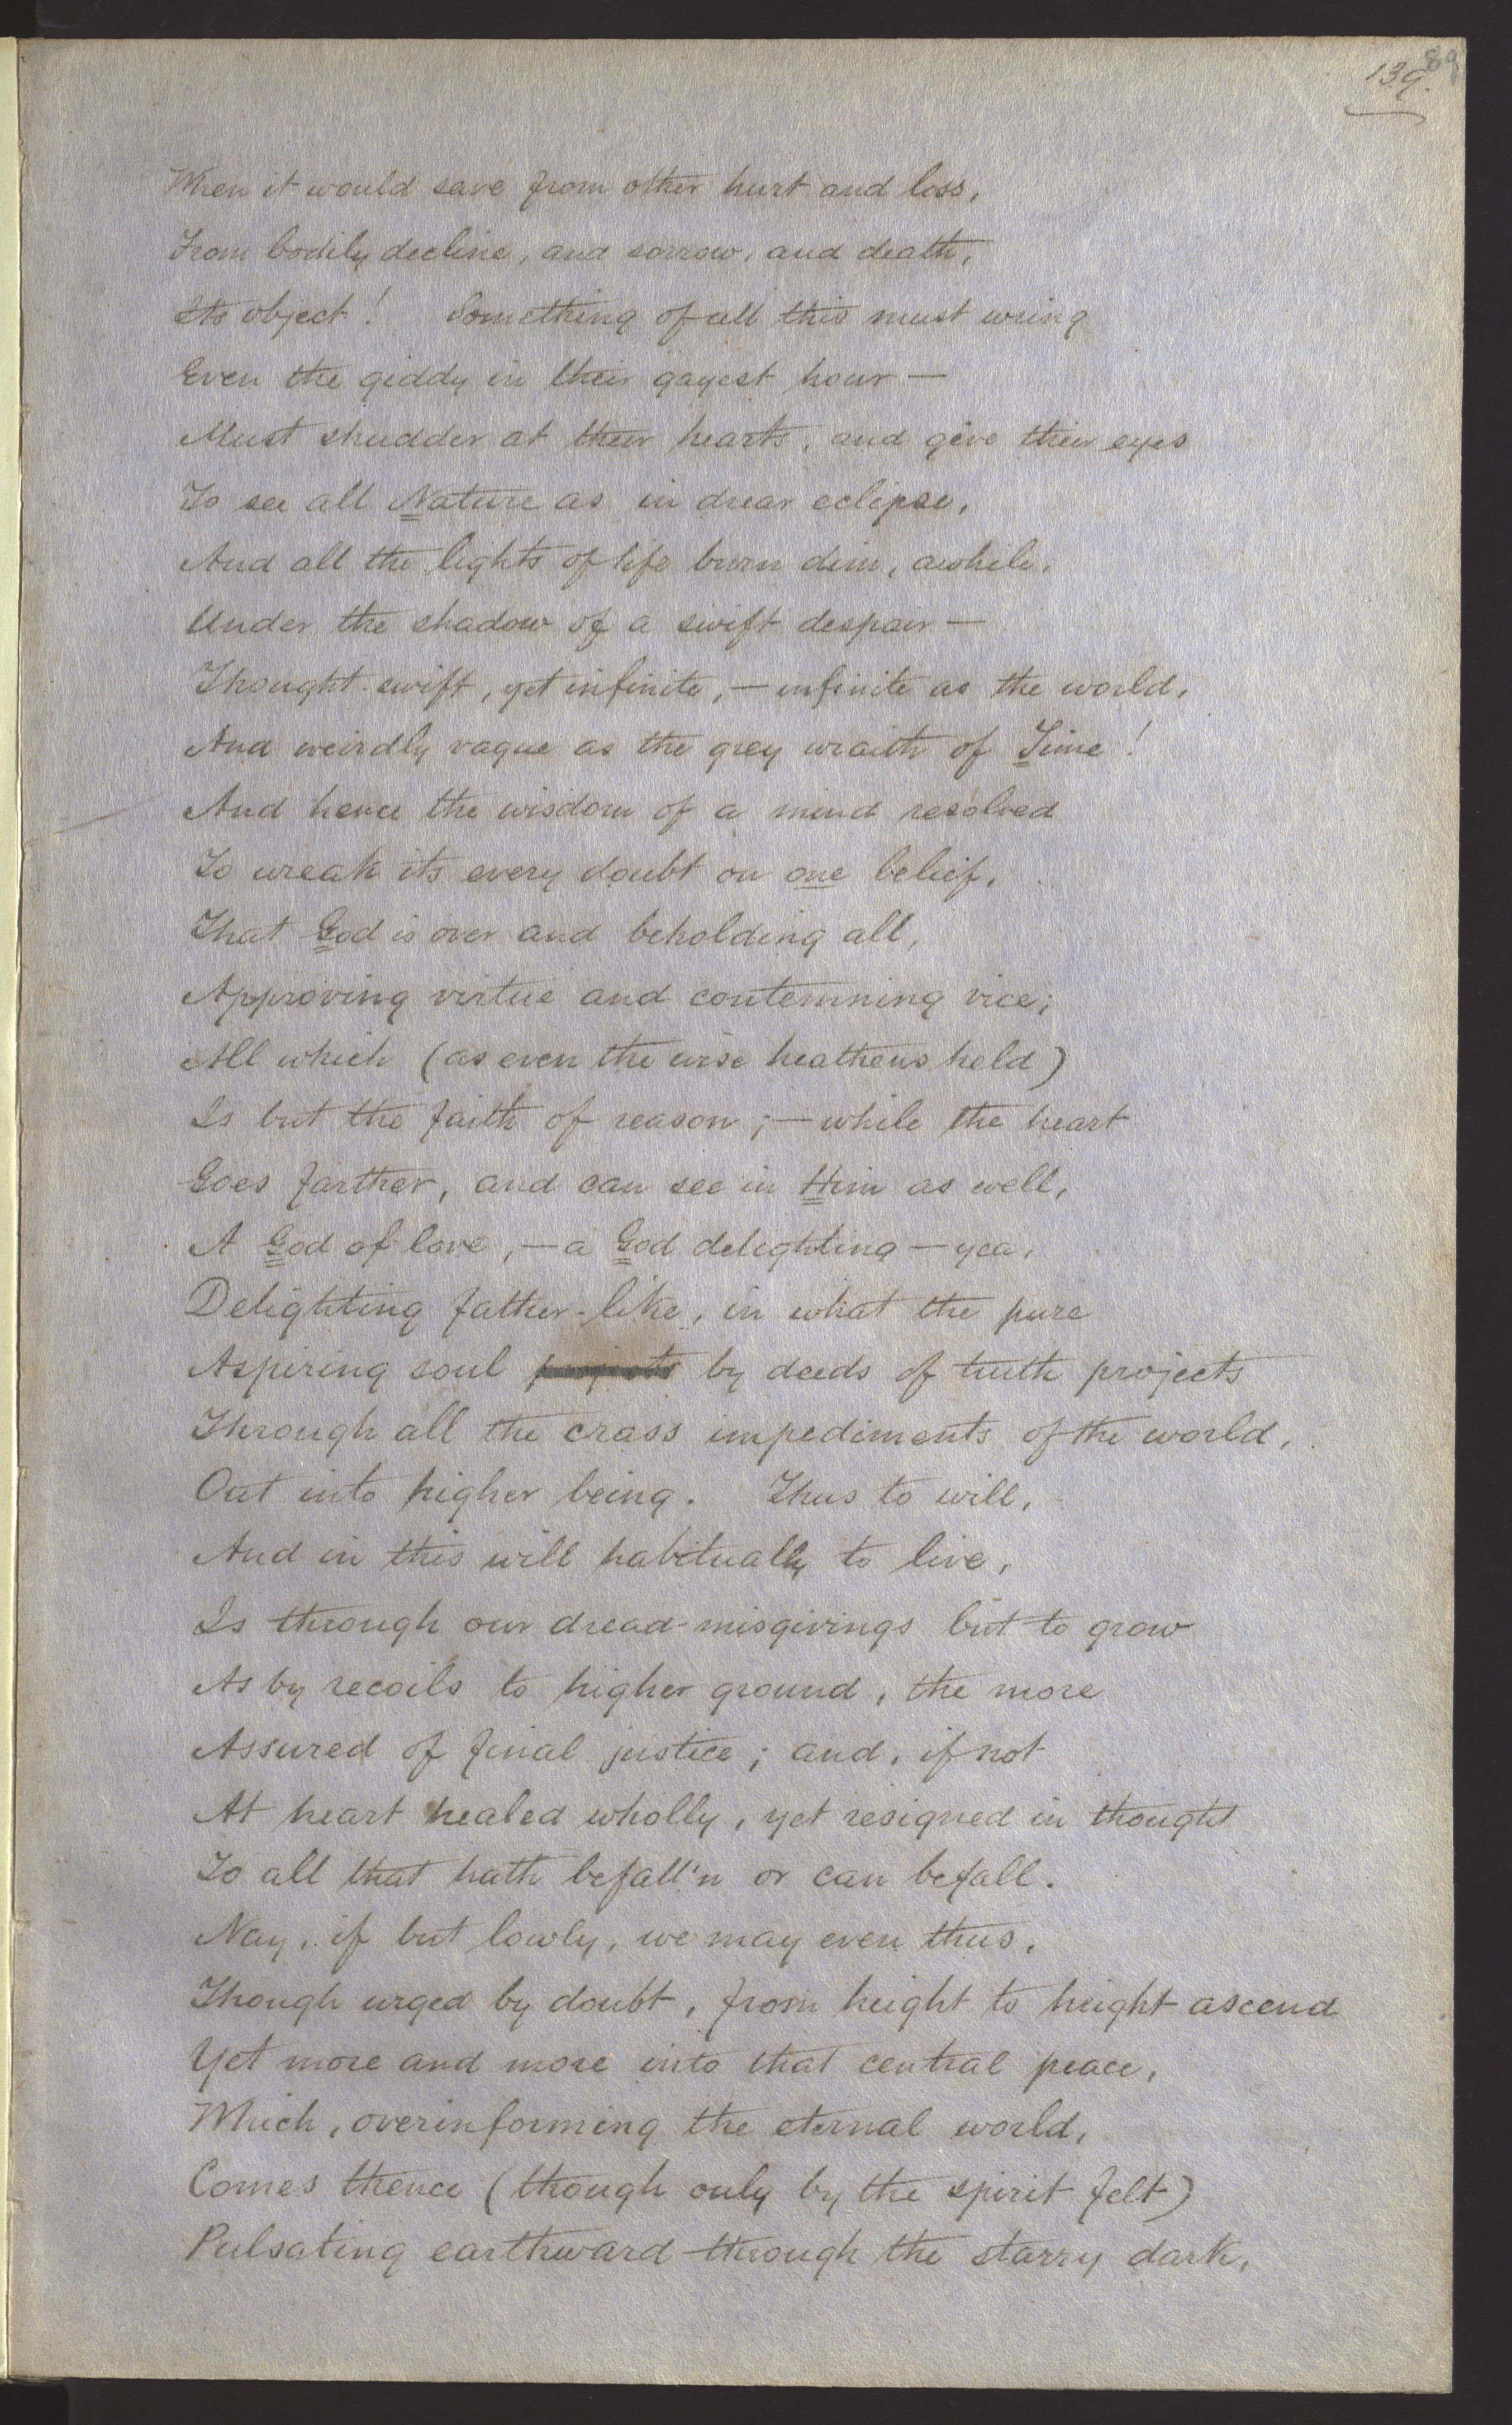 139.
89
When it would save from other hurt and loss,
From bodily decline, and sorrow, and death,
Its object! Something of all this must wring
Even the giddy in their gayest hour —
Must shudder at their hearts, and give their eyes
To see all Nature as in drear eclipse,
And all the lights of life burn dim, awhile,
Under the shadow of a swift despair —
Thought-swift, yet infinite, — infinite as the world,
And weirdly vague as the grey wraith of Time!
And hence the wisdom of a mind resolved
To wreak its every doubt on one belief,
That God is over and beholding all,
Approving virtue and contemning vice;
All which (as even the wise heathens held)
Is but the faith of reason; — while the heart
Goes farther, and can see in Him as well,
A God of love, — a God delighting — yea,
Delighting father-like, in what the pure
Aspiring soul projects by deeds of truth projects
Through all the crass impediments of the world,
Out into higher being. Thus to will,
And in this will habitually to live,
Is through our dread misgivings but to grow
As by recoils to higher ground, the more
Assured of final justice; and, if not
At heart healed wholly, yet resigned in thought
To all that hath befall'n or can befall.
Nay, if but lowly, we may even thus,
Though urged by doubt, from height to height ascend
Yet more and more into that central peace,
Which, overinforming the eternal world,
Comes thence (though only by the spirit felt)
Pulsating earthward through the starry dark,